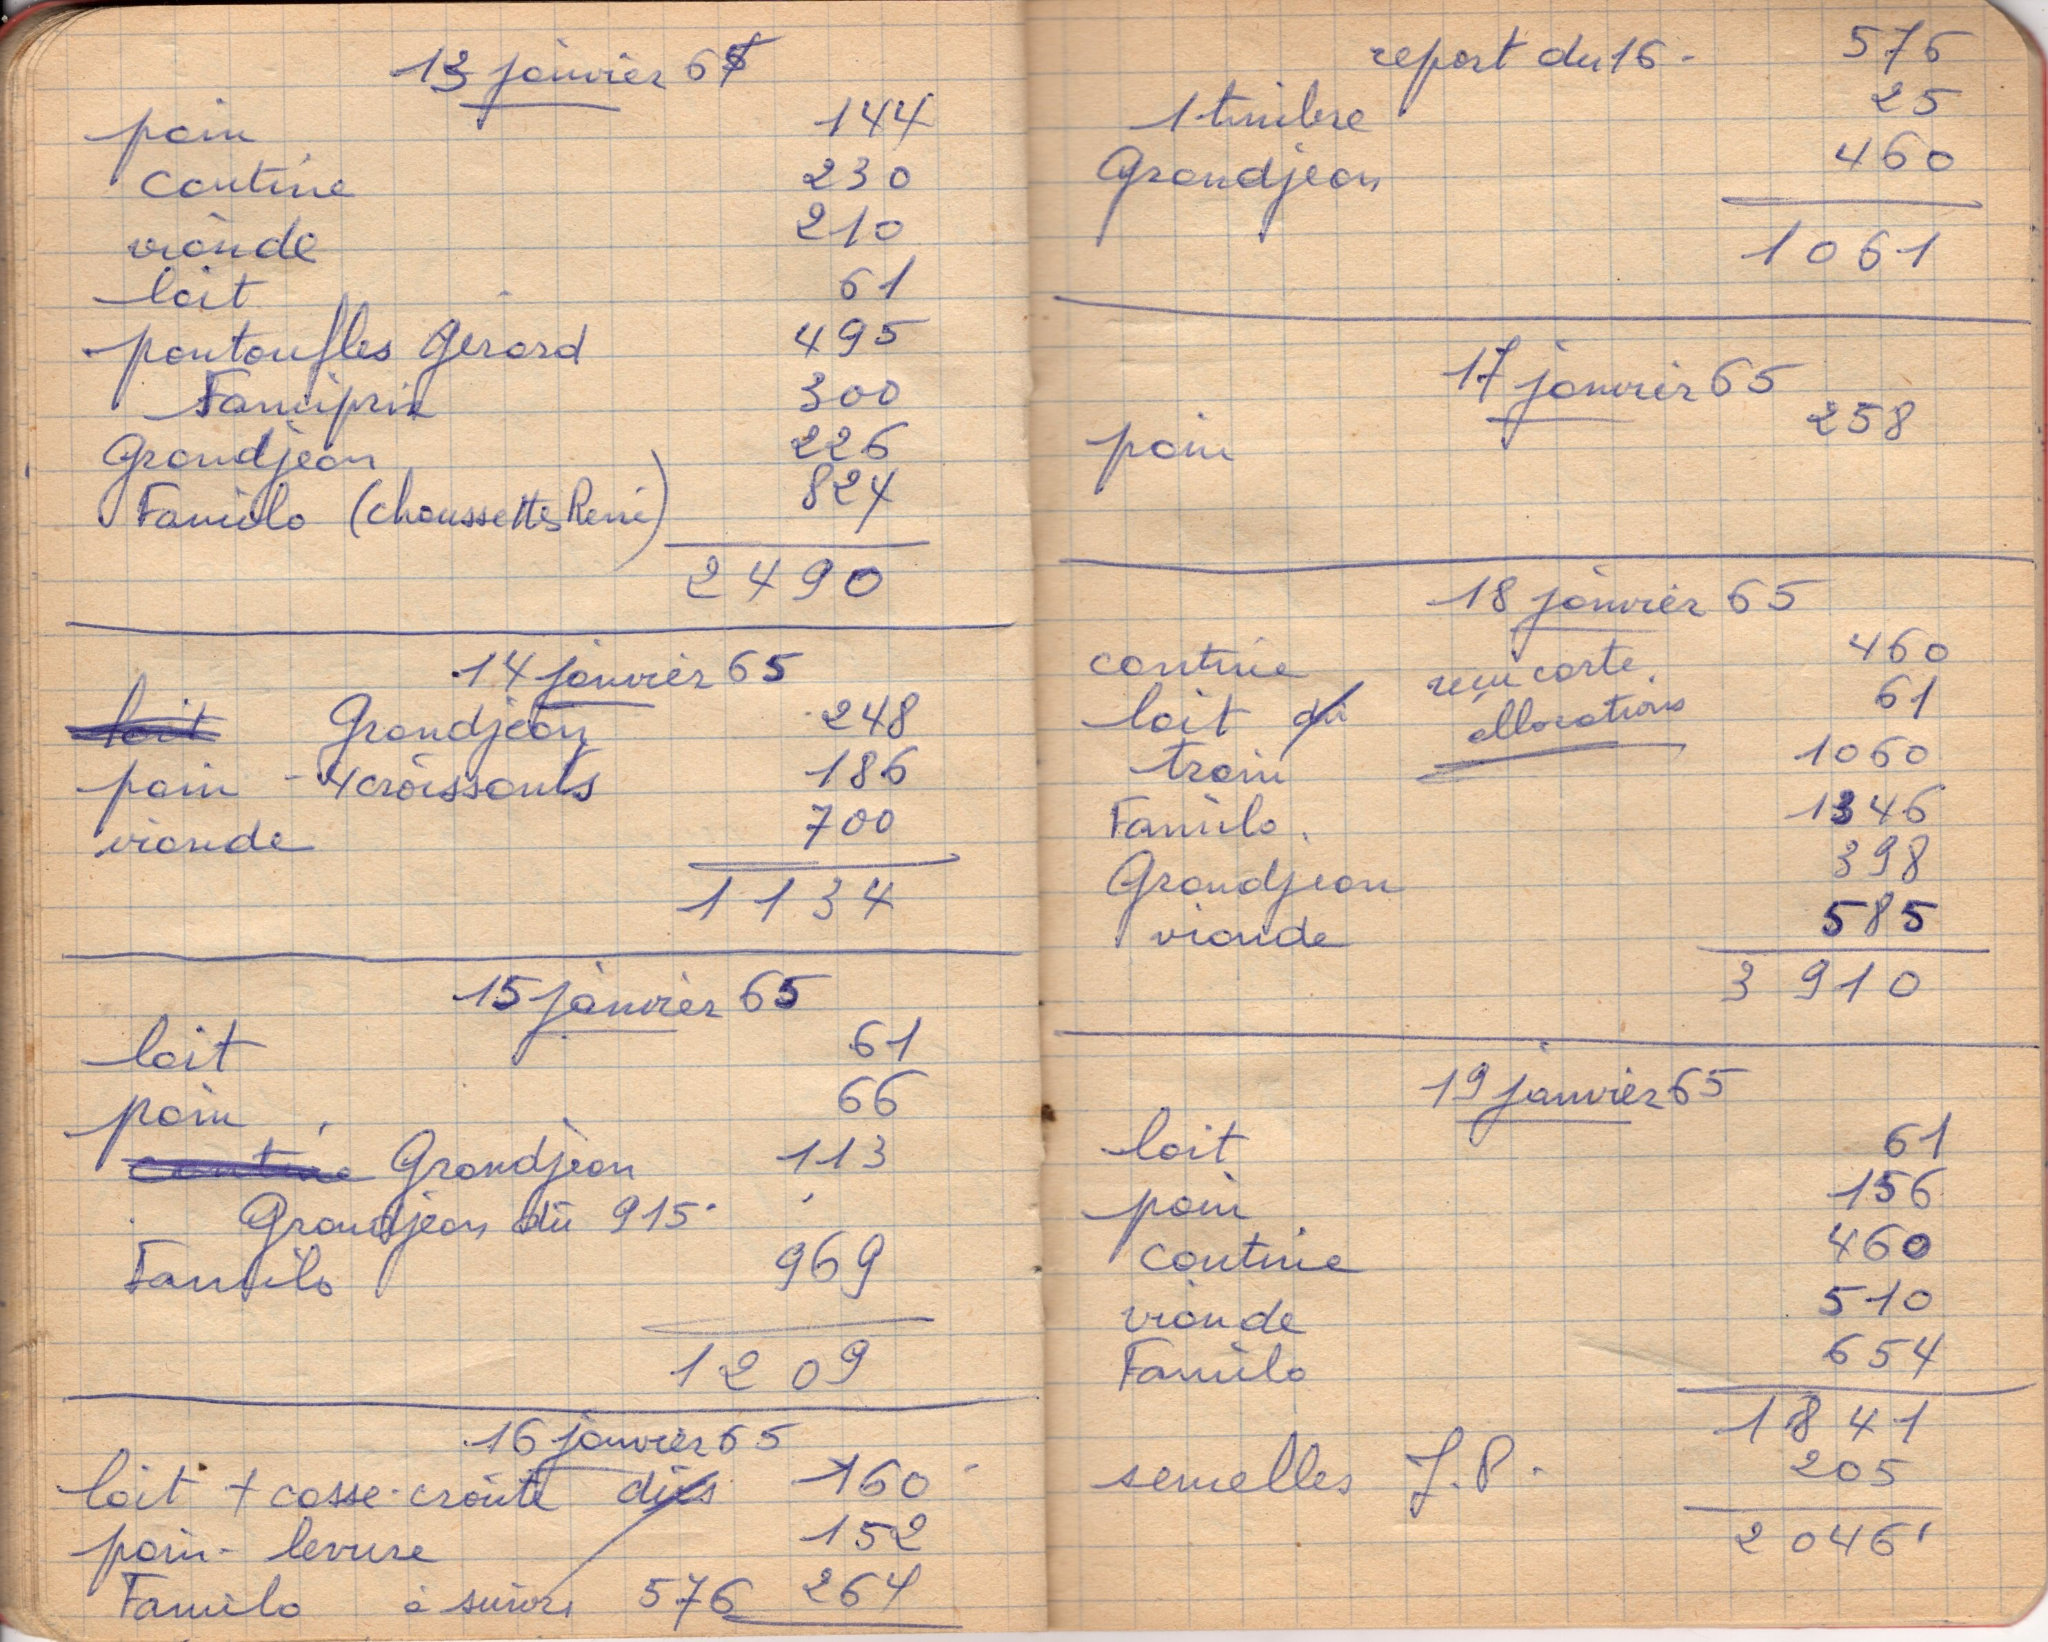 13 janvier 65
pain 144
cantine 230
viande 210
lait 61
pantoufles Gérard 495
Familprix 300
Grandjean 226
Familo (chaussettes René) 824
2490
14 janvier 65
lait Grandjean 248
pain - 4 croissants 186
viande 700
1134
15 janvier 65
lait 61
pain 66
cantine Grandjean 113
Grandjean dû 915
Familo 969
1209
16 janvier 65
lait + casse-croûte dûs 160
pain - levure 152
Familo à suivre 576 264
report du 16 - 576
1 timbre 25
Grandjean 460
1061
17 janvier 65
pain 258
18 janvier 65
cantine reçu carte 460
lait dû allocations 61
train 1060
Familo 1346
Grandjean 398
viande 585
3910
19 janvier 65
lait 61
pain 156
cantine 460
viande 510
Familo 654
1841
semelles J.P. 205
2046